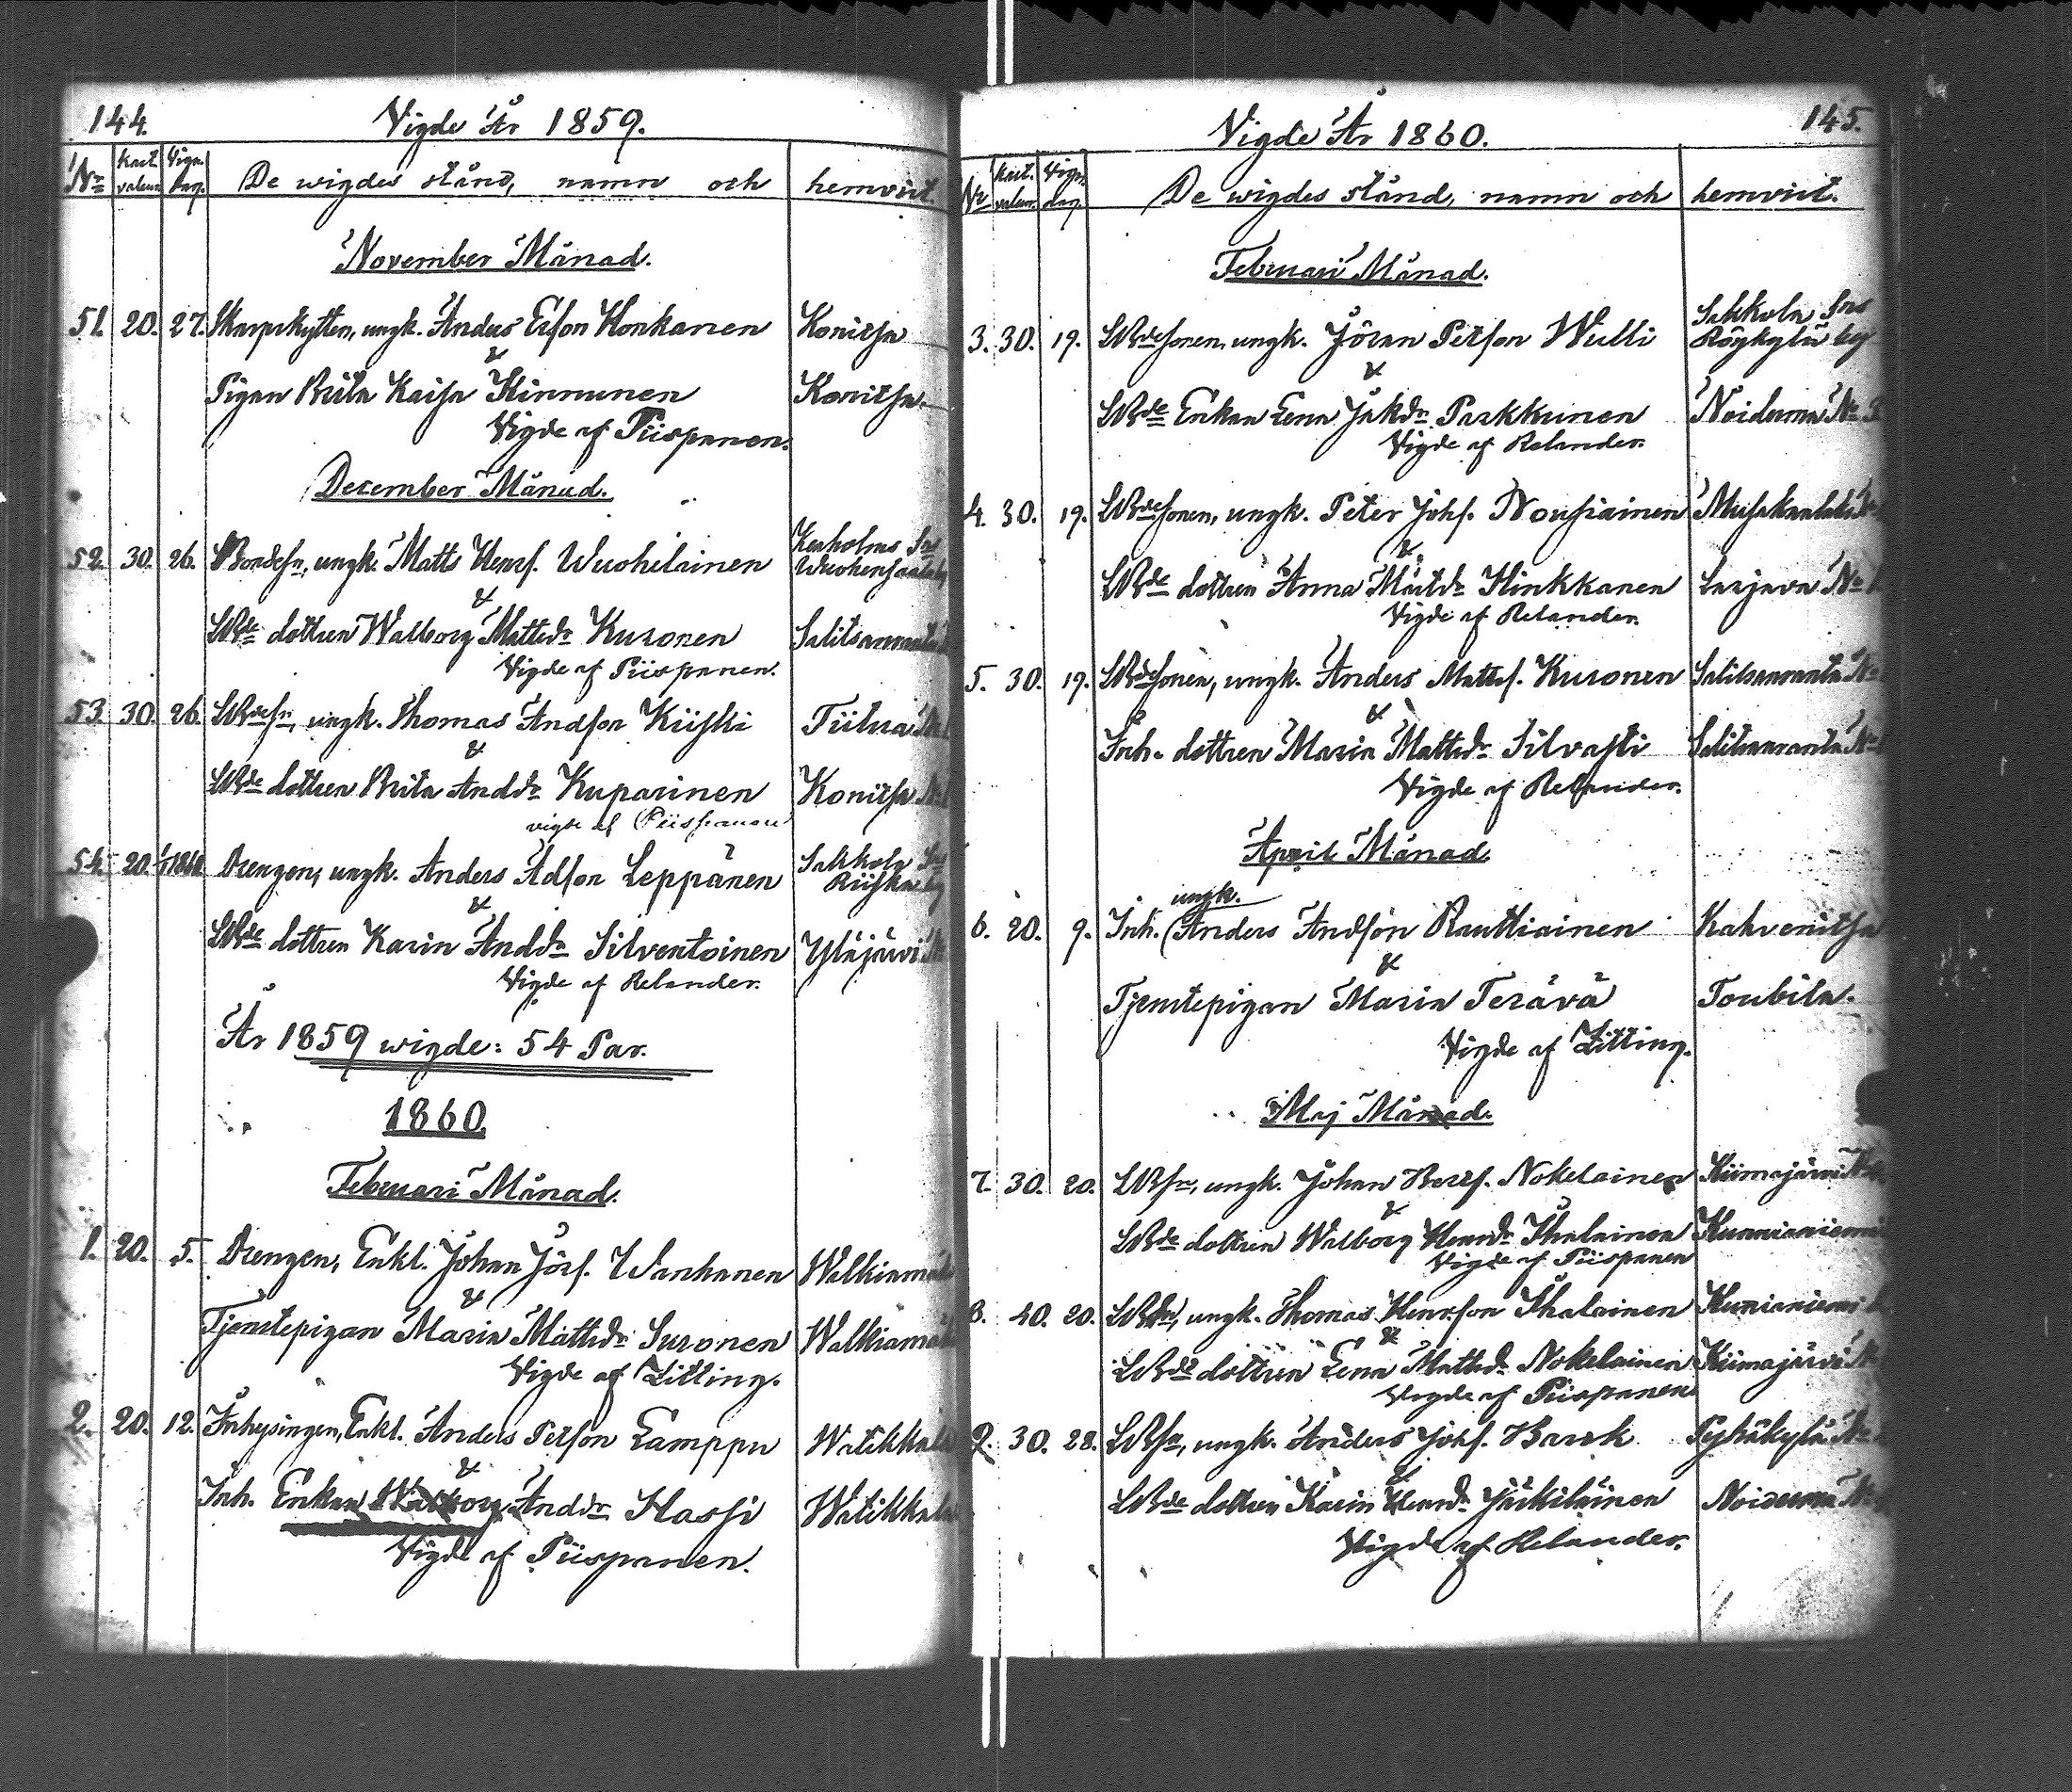 144.
Vigde År 1859.
No Kast. valuan Vign. dag. De wigdes stånd, namn och hemvist.
November Månad.
51. 20. 27. Skarpskytten, ungk. Anders Erſson Honkanen Konitsa
&
Pigan Brita Kaisa Kinnunen Konitsa.
Vigde af Piispanen.
December Månad.
52. 30. 26. Bondesn, ungk. Matts Henrs. Wuohelainen Kexholms Sn Wuohensalo by
&
LBde dottren Walborg Mattsdr Kuronen Salitsanranta
Vigde af Piispanen.
53. 30. 26. LBdesn, ungk. Thomas Andson Kiiski Tiitua
&
LBde dottren Brita Anddr Kuparinen Konitsa
vigde af Piispanen
54. 20. 1/1 1860 Drengen, ungk. Anders Adſson Leppänen Sakkola Sn Riiska by
&
LBde dottren Karin Anddr Silventoinen Yläjärvi
Vigde af Relander.
År 1859 wigde: 54 Par.
1860.
Februari Månad.
1. 20. 5. Drengen, Enkl. Johan Jörs. Wanhanen Walkiamä
&
Tjenstepigan Maria Mattsdr Suronen Walkiamä
Vigde af Zitting.
2. 20. 12. Inhysingen, Enkl. Anders Petson Lamppu Watikkala
&
Inh. Enkan Walborg Anddr Hassi Watikkala
Vigde af Piispanen.
145.
Vigde År 1860.
No Kast. valuan. Vign. dag. De wigdes stånd, namn och hemvist.
Februari Månad.
3. 30. 19. LBdesonen, ungk. Jöran Petson Wulli Sakkola Sns Röykylä by
&
LBde Enkan Lena Jakdr Parkkunen Noiderma No
Vigde af Relander.
4. 30. 19. LBdesonen, ungk. Peter Johs. Nousiainen
&
LBde dottren Anna Matsdr Hinkkanen Larjava No
Vigde af Relander.
5. 30. 19. LBdesonen, ungk. Anders Matts. Kuronen Salitsanranta No
&
Inh. dottren Maria Mattsdr Silvasti Salitsanranta No
Vigde af Relander.
April Månad
ungk.
6. 20. 9. Inh. (Anders Andson Rauttiainen Kahvenitsa
&
Tjenstepigan Maria Terävä Toubila.
Vigde af Zitting.
Maj Månad.
7. 30. 20. LBsn, ungk. Johan Bers. Nokelainen Kiimajärvi
&
LBde dottren Walborg Henrdr Ihalainen Kunnianiemi
Vigde af Piispanen
8. 40. 20. LBsn, ungk. Thomas Henrson Ihalainen Kunianiemi
&
LBde dottren Lena Mattsdr Nokelainen Kiimajärvi
Vigde af Piispanen
9. 30. 28. LBsn, ungk. Anders Johs. Barck Pyhäkylä No
&
LBde dottren Karin Henrdr Jäskiläinen Noiderma No
Vigde af Relander.